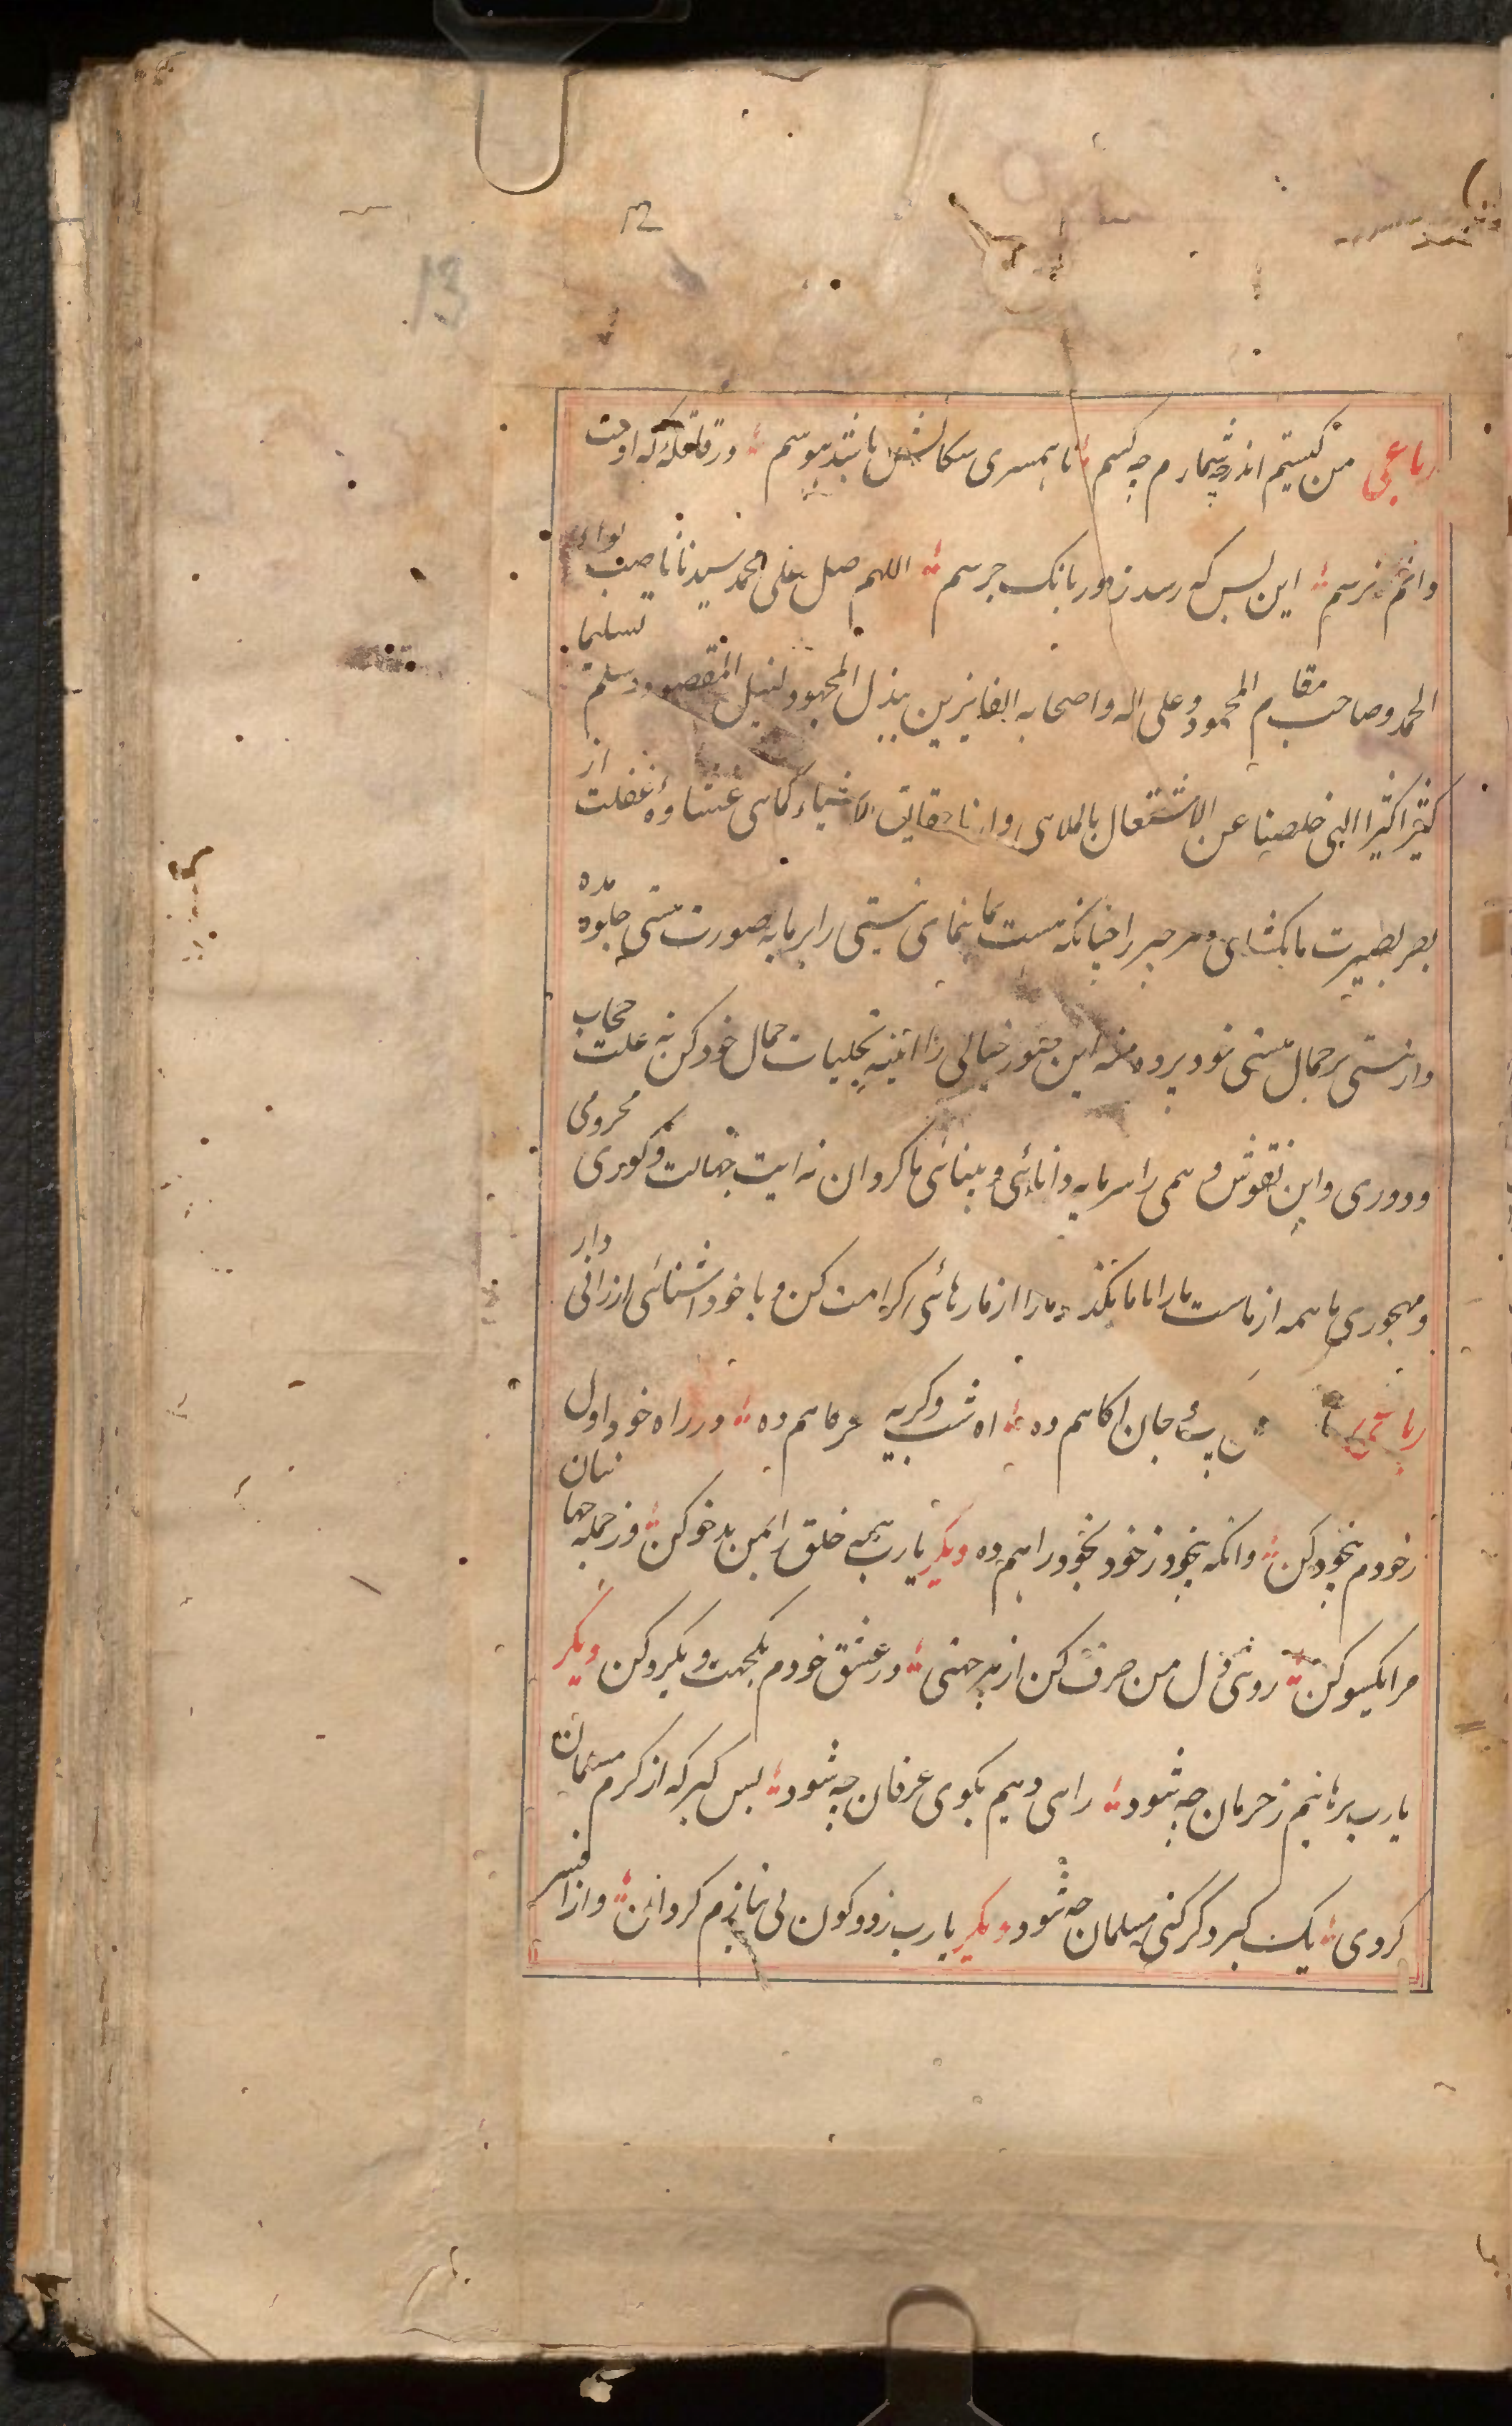 12
13
رباعی من کیستم اندر چه شمارم چه کسم تا همسری سکانش باشد هوسم در قافله که اوست
دانم نرسم این بس که رسد ز دور بانک جرسم اللهم صل علی محمد سیدنا ناصب لواء
الحمد و صاحب مقام المحمود و علی اله و اصحابه الفایزین ببذل المجهود لنیل المقصود و سلم تسلیما
کثیرا کثیرا الهی خلصنا عن الاشتغال بالملاهی و ارنا حقایق الاشیاء کماهی غشاوه غفلت از
بصر بصیرت ما بکشای و هر چیز را چنانکه هست بما بنمای نیستی را بر ما به صورت هستی جلوه مده
و از نیستی بر جمال هستی خود پرده منه این صور خیالی را ائینه تجلیات جمال خود کن نه علت حجاب
و دوری و این نقوش وهمی را سرمایه دانائی و بینائی ما کردان نه ایت جهالت و کوری محرومی
و مهجوری ما همه از ماست ما را با ما مکذار ما را از ما رهائی کرامت کن و با خود اشنائی ارزانی دار
رباعی جان اکاهم ده اه شب و کریه سحرکاهم ده در راه خود اول
ز خودم بیخود کن وانکه بیخود ز خود بخود راهم ده دیکر یارب همه خلق را بمن بدخو کن وز جمله جهانیان
مرا یکسو کن روی دل من صرف کن از هر جهتی در عشق خودم یکجهت و یکرو کن دیکر
یارب برهانیم ز حرمان چه شود راهی دهیم بکوی عرفان چه شود بس کبر که از کرم مسلمان
کردی یک کبر دکر کنی مسلمان چه شود دیکر یارب ز دو کون بی نیازم کردان و از افسر